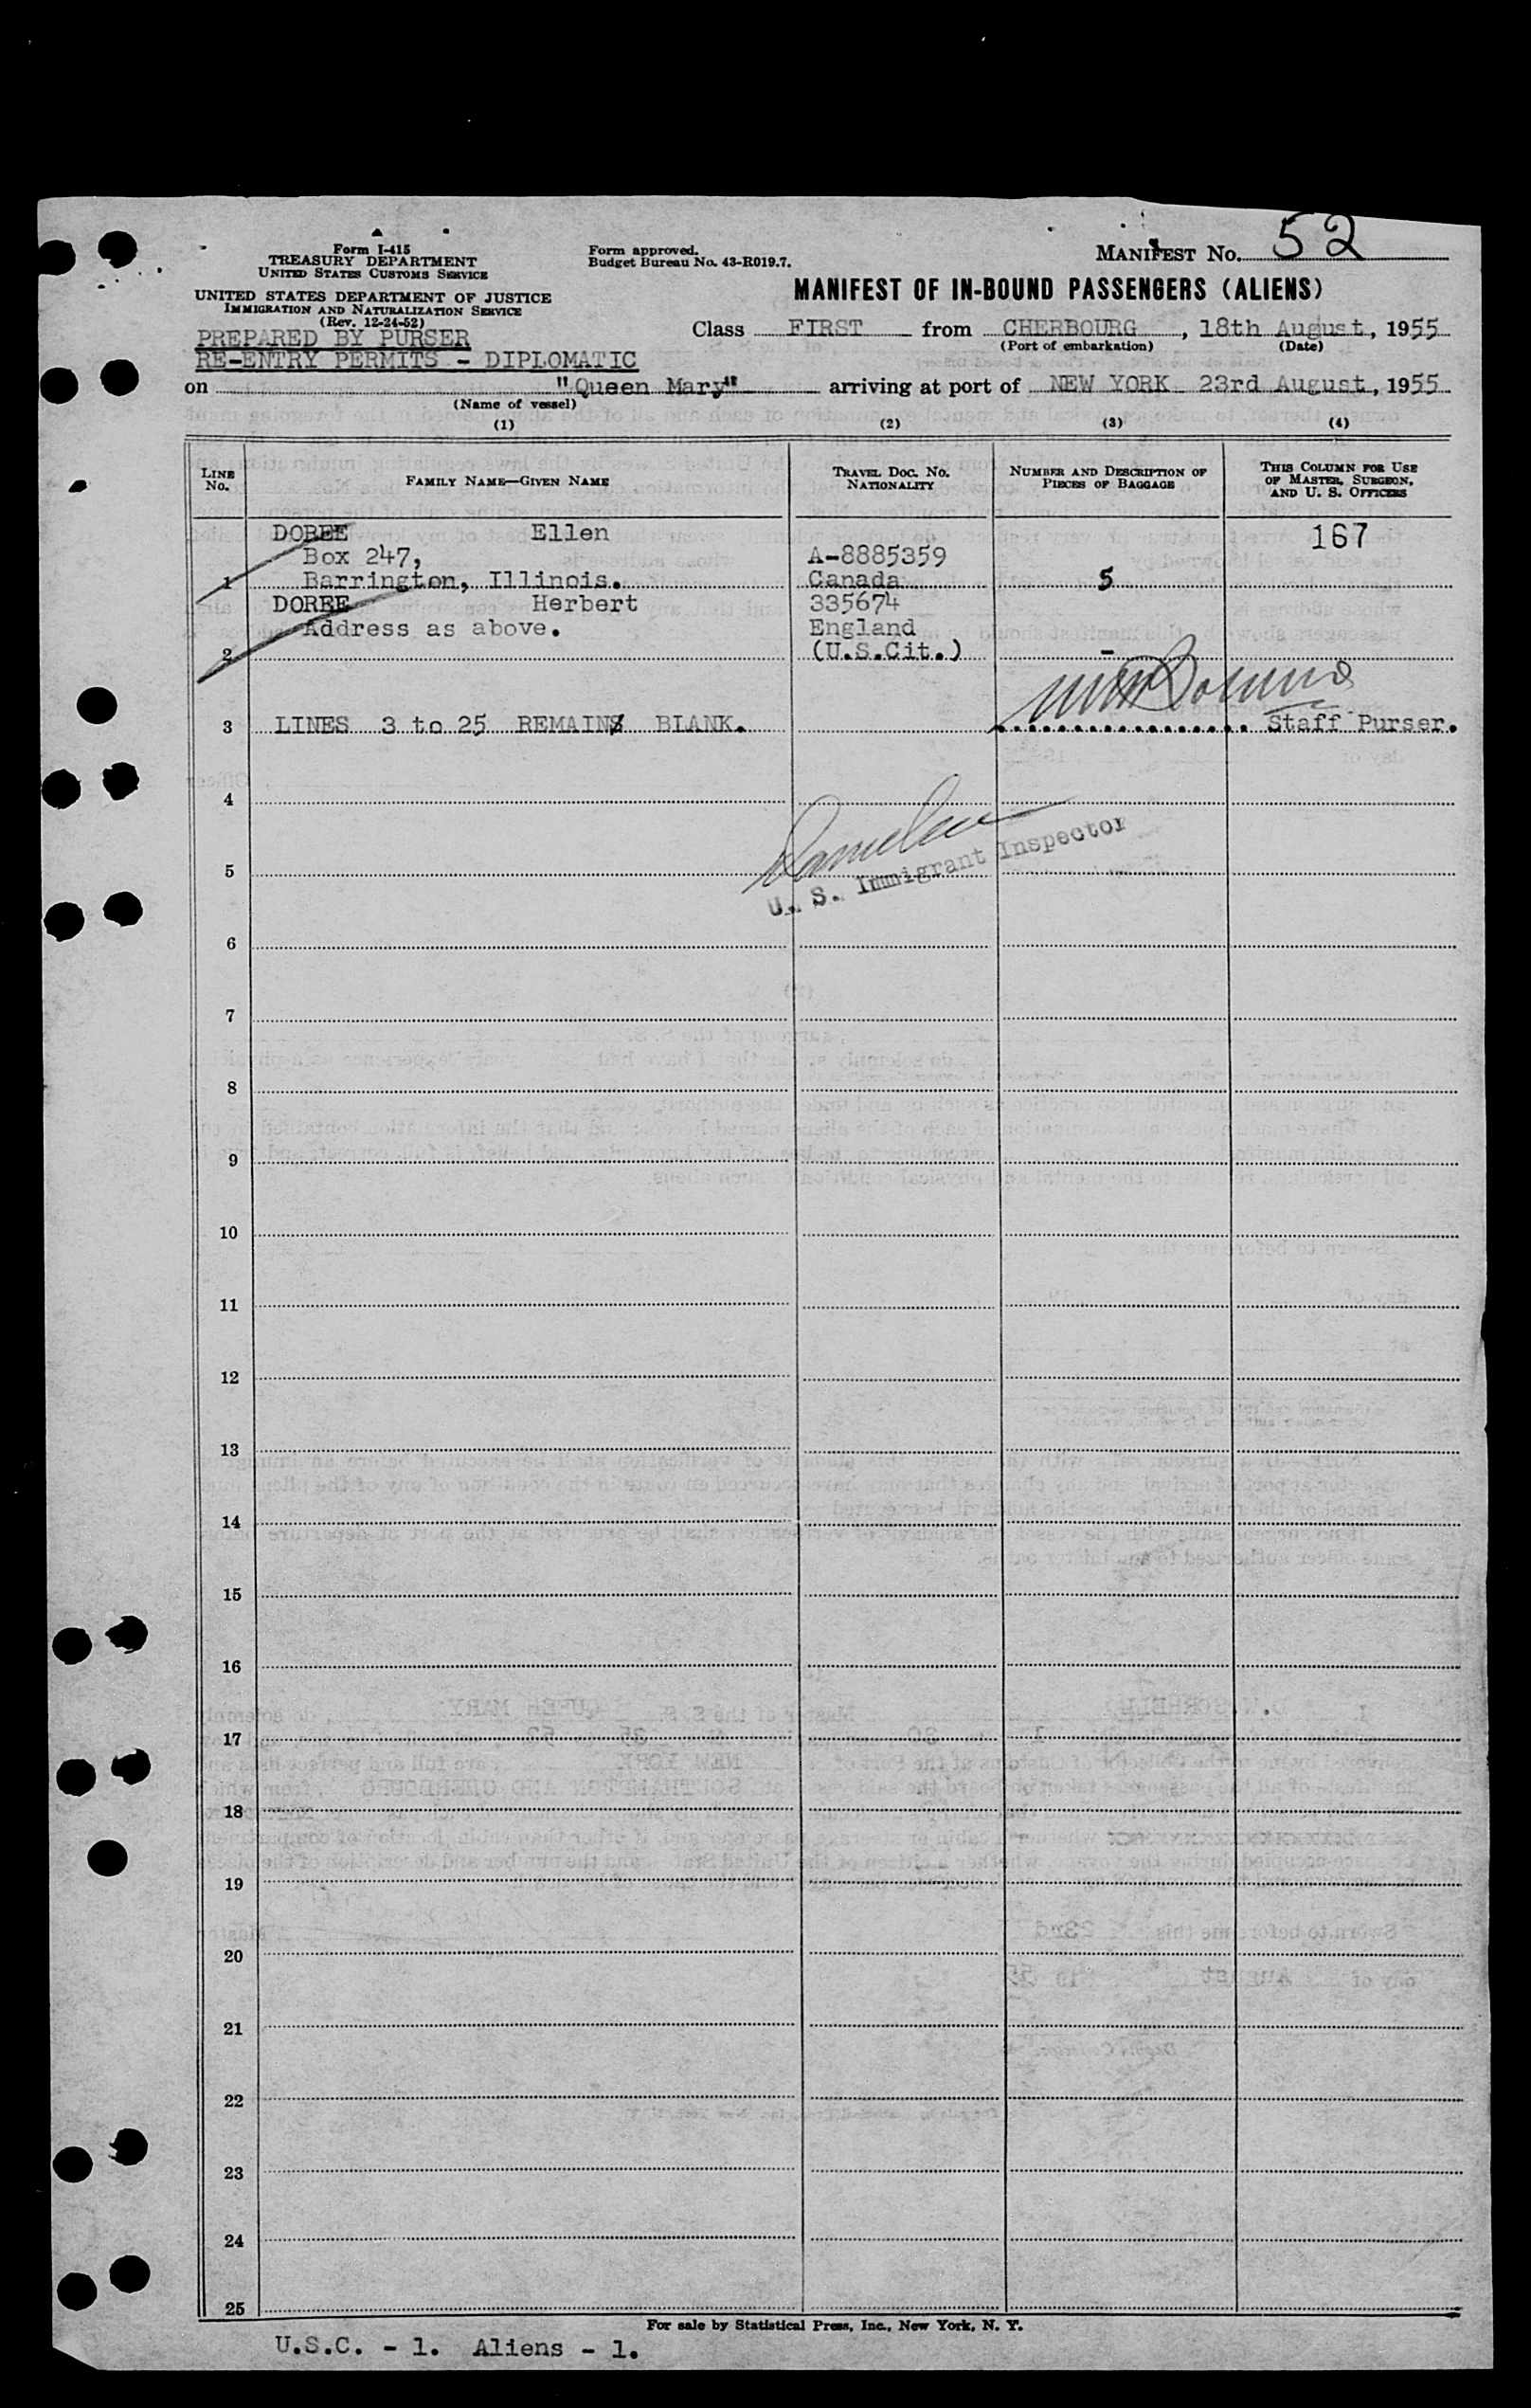 Form I-415
TREASURY DEPARTMENT
UNITED STATES CUSTOMS SERVICE
UNITED STATES DEPARTMENT OF JUSTICE
IMMIGRATION AND NATURALIZATION SERVICE
(Rev. 12-24-52)
PREPARED BY PURSER
RE-ENTRY PERMITS - DIPLOMATIC
Form approved.
Budget Bureau No. 43-R019.7.
MANIFEST No. 52
MANIFEST OF IN-BOUND PASSENGERS (ALIENS)
Class FIRST from CHERBOURG, 18th August, 1955
(Port of embarkation) (Date)
on "Queen Mary" arriving at port of NEW YORK 23rd August, 1955
(Name of vessel)
(1) (2) (3) (4)
LINE No. FAMILY NAME—GIVEN NAME TRAVEL DOC. NO. NATIONALITY NUMBER AND DESCRIPTION OF PIECES OF BAGGAGE THIS COLUMN FOR USE OF MASTER, SURGEON, AND U. S. OFFICERS
DOREE Ellen 167
Box 247, A-8885359
1 Barrington, Illinois. Canada 5
DOREE Herbert 335674
Address as above. England
2 (U.S.Cit.) -
3 LINES 3 to 25 REMAINS BLANK. Staff Purser.
4
U. S. Immigrant Inspector
5
6
7
8
9
10
11
12
13
14
15
16
17
18
19
20
21
22
23
24
25
For sale by Statistical Press, Inc., New York, N. Y.
U.S.C. - 1. Aliens - 1.